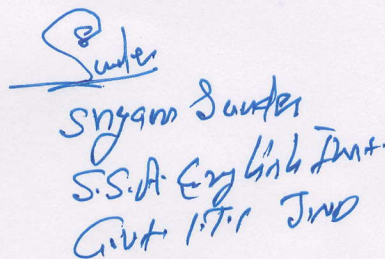 Sunder
Shyam Sunder
S.S.A. English Inst.
Govt. I.T.I JIND